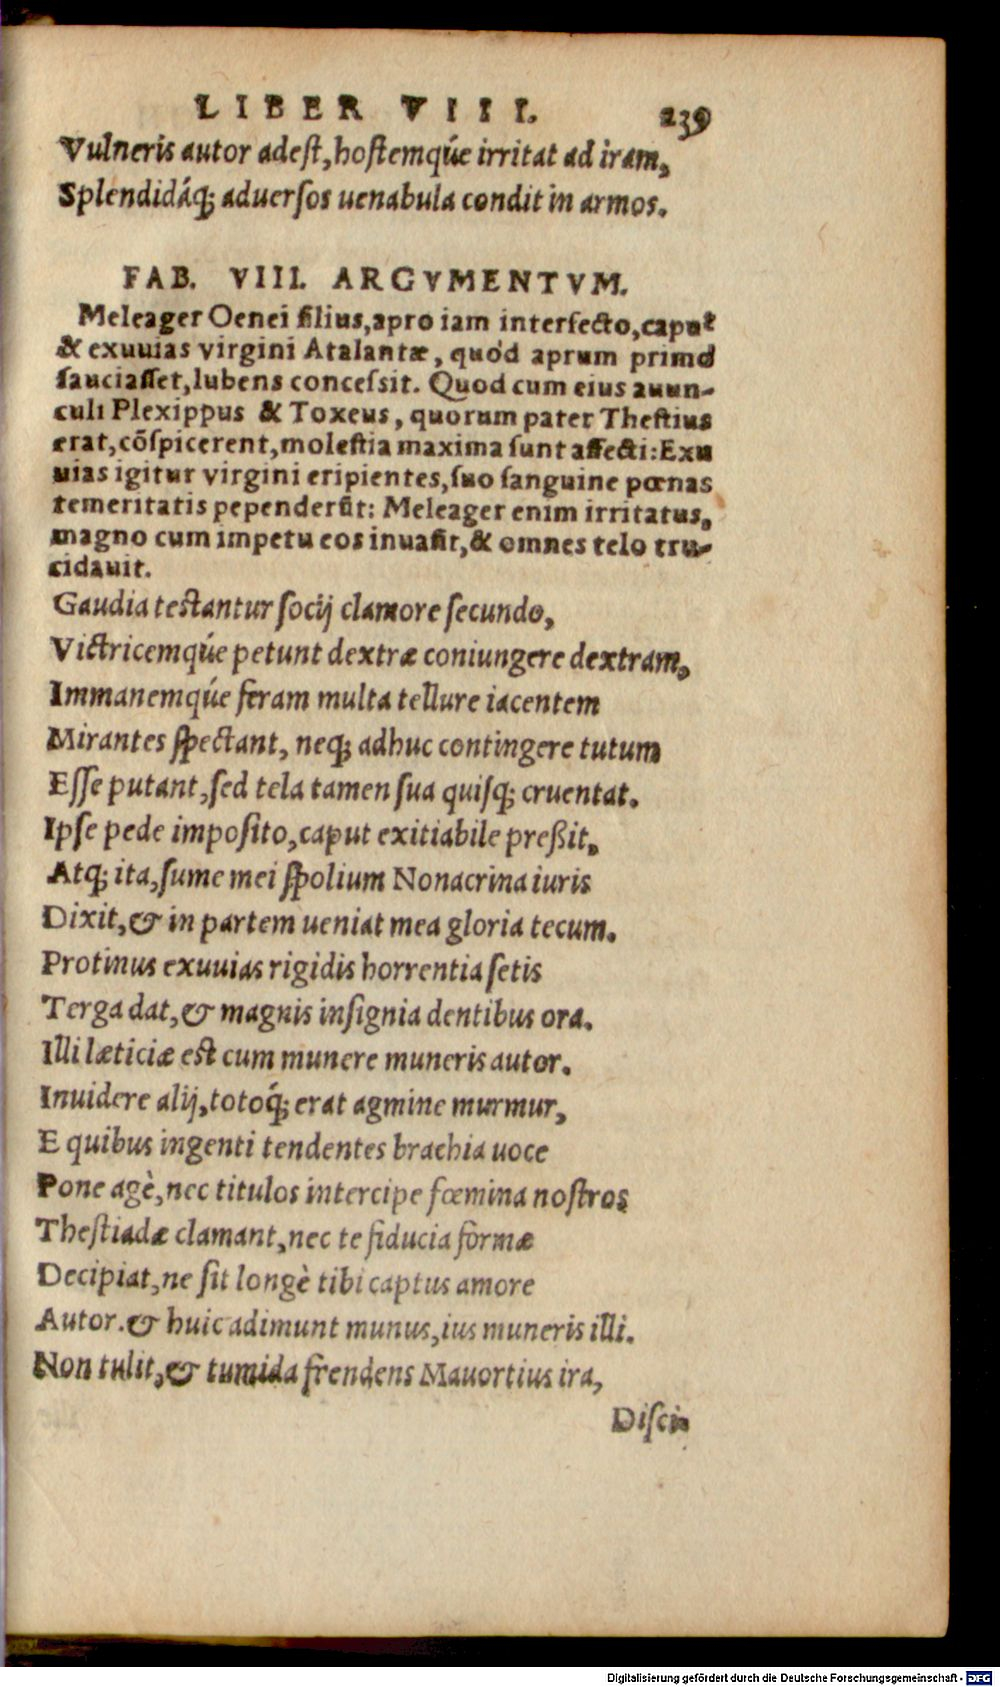 LIBER VIII. 239
Vulneris autor adest, hostemq́ue irritat ad iram,
Splendidáq; aduersos uenabula condit in armos.
FAB. VIII. ARGVMENTVM.
Meleager Oenei filius, apro iam interfecto, caput
& exuuias virgini Atalantæ, quòd aprum primò
sauciasset, lubens concessit. Quod cum eius auun-
culi Plexippus & Toxeus, quorum pater Thestius
erat, cõspicerent, molestia maxima sunt affecti: Exu
uias igitur virgini eripientes, suo sanguine pœnas
temeritatis pependerũt: Meleager enim irritatus,
magno cum impetu eos inuasit, & omnes telo tru-
cidauit.
Gaudia testantur socij clamore secundo,
Victricemq́ue petunt dextræ coniungere dextram,
Immanemq́ue feram multa tellure iacentem
Mirantes spectant, neq; adhuc contingere tutum
Esse putant, sed tela tamen sua quisq; cruentat.
Ipse pede imposito, caput exitiabile preßit,
Atq; ita, sume mei spolium Nonacrina iuris
Dixit, & in partem ueniat mea gloria tecum.
Protinus exuuias rigidis horrentia setis
Terga dat, & magnis insignia dentibus ora.
Illi læticiæ est cum munere muneris autor.
Inuidere alij, totoq́; erat agmine murmur,
E quibus ingenti tendentes brachia uoce
Pone agè, nec titulos intercipe fœmina nostros
Thestiadæ clamant, nec te fiducia formæ
Decipiat, ne sit longè tibi captus amore
Autor. & huic adimunt munus, ius muneris illi.
Non tulit, & tumida frendens Mauortius ira,
Disci-
Digitalisierung gefördert durch die Deutsche Forschungsgemeinschaft - DFG